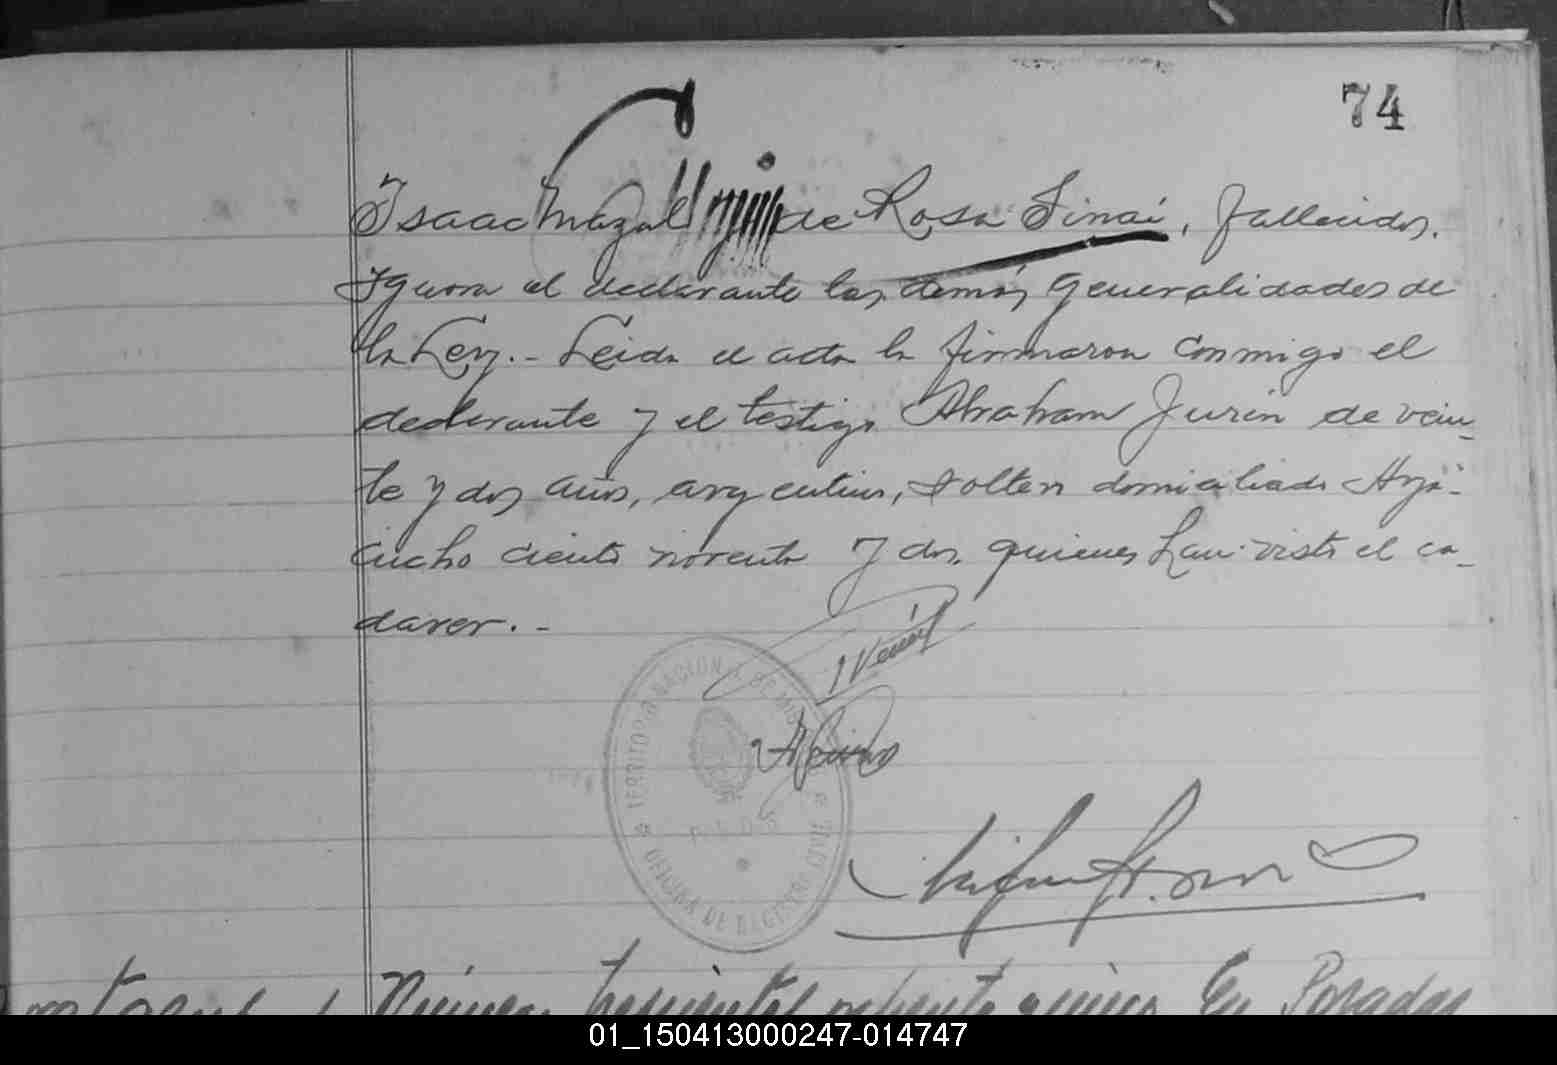 74
Isaac Mazal y de Rosa Sinai, fallecidos.
Ygnora el declarante las demás generalidades de
la Ley.- Leida el acta la firmaron conmigo el
declarante y el testigo Abraham Jurin de vein-
te y dos años, argentino, soltero domiciliado Aya-
cucho ciento noventa y dos, quienes han visto el ca-
daver.-
TERRITORIO NACIONAL DE MISIONES
OFICINA DE REGISTRO CIVIL
Número trescientos ochenta y cinco En Posadas
01_150413000247-014747